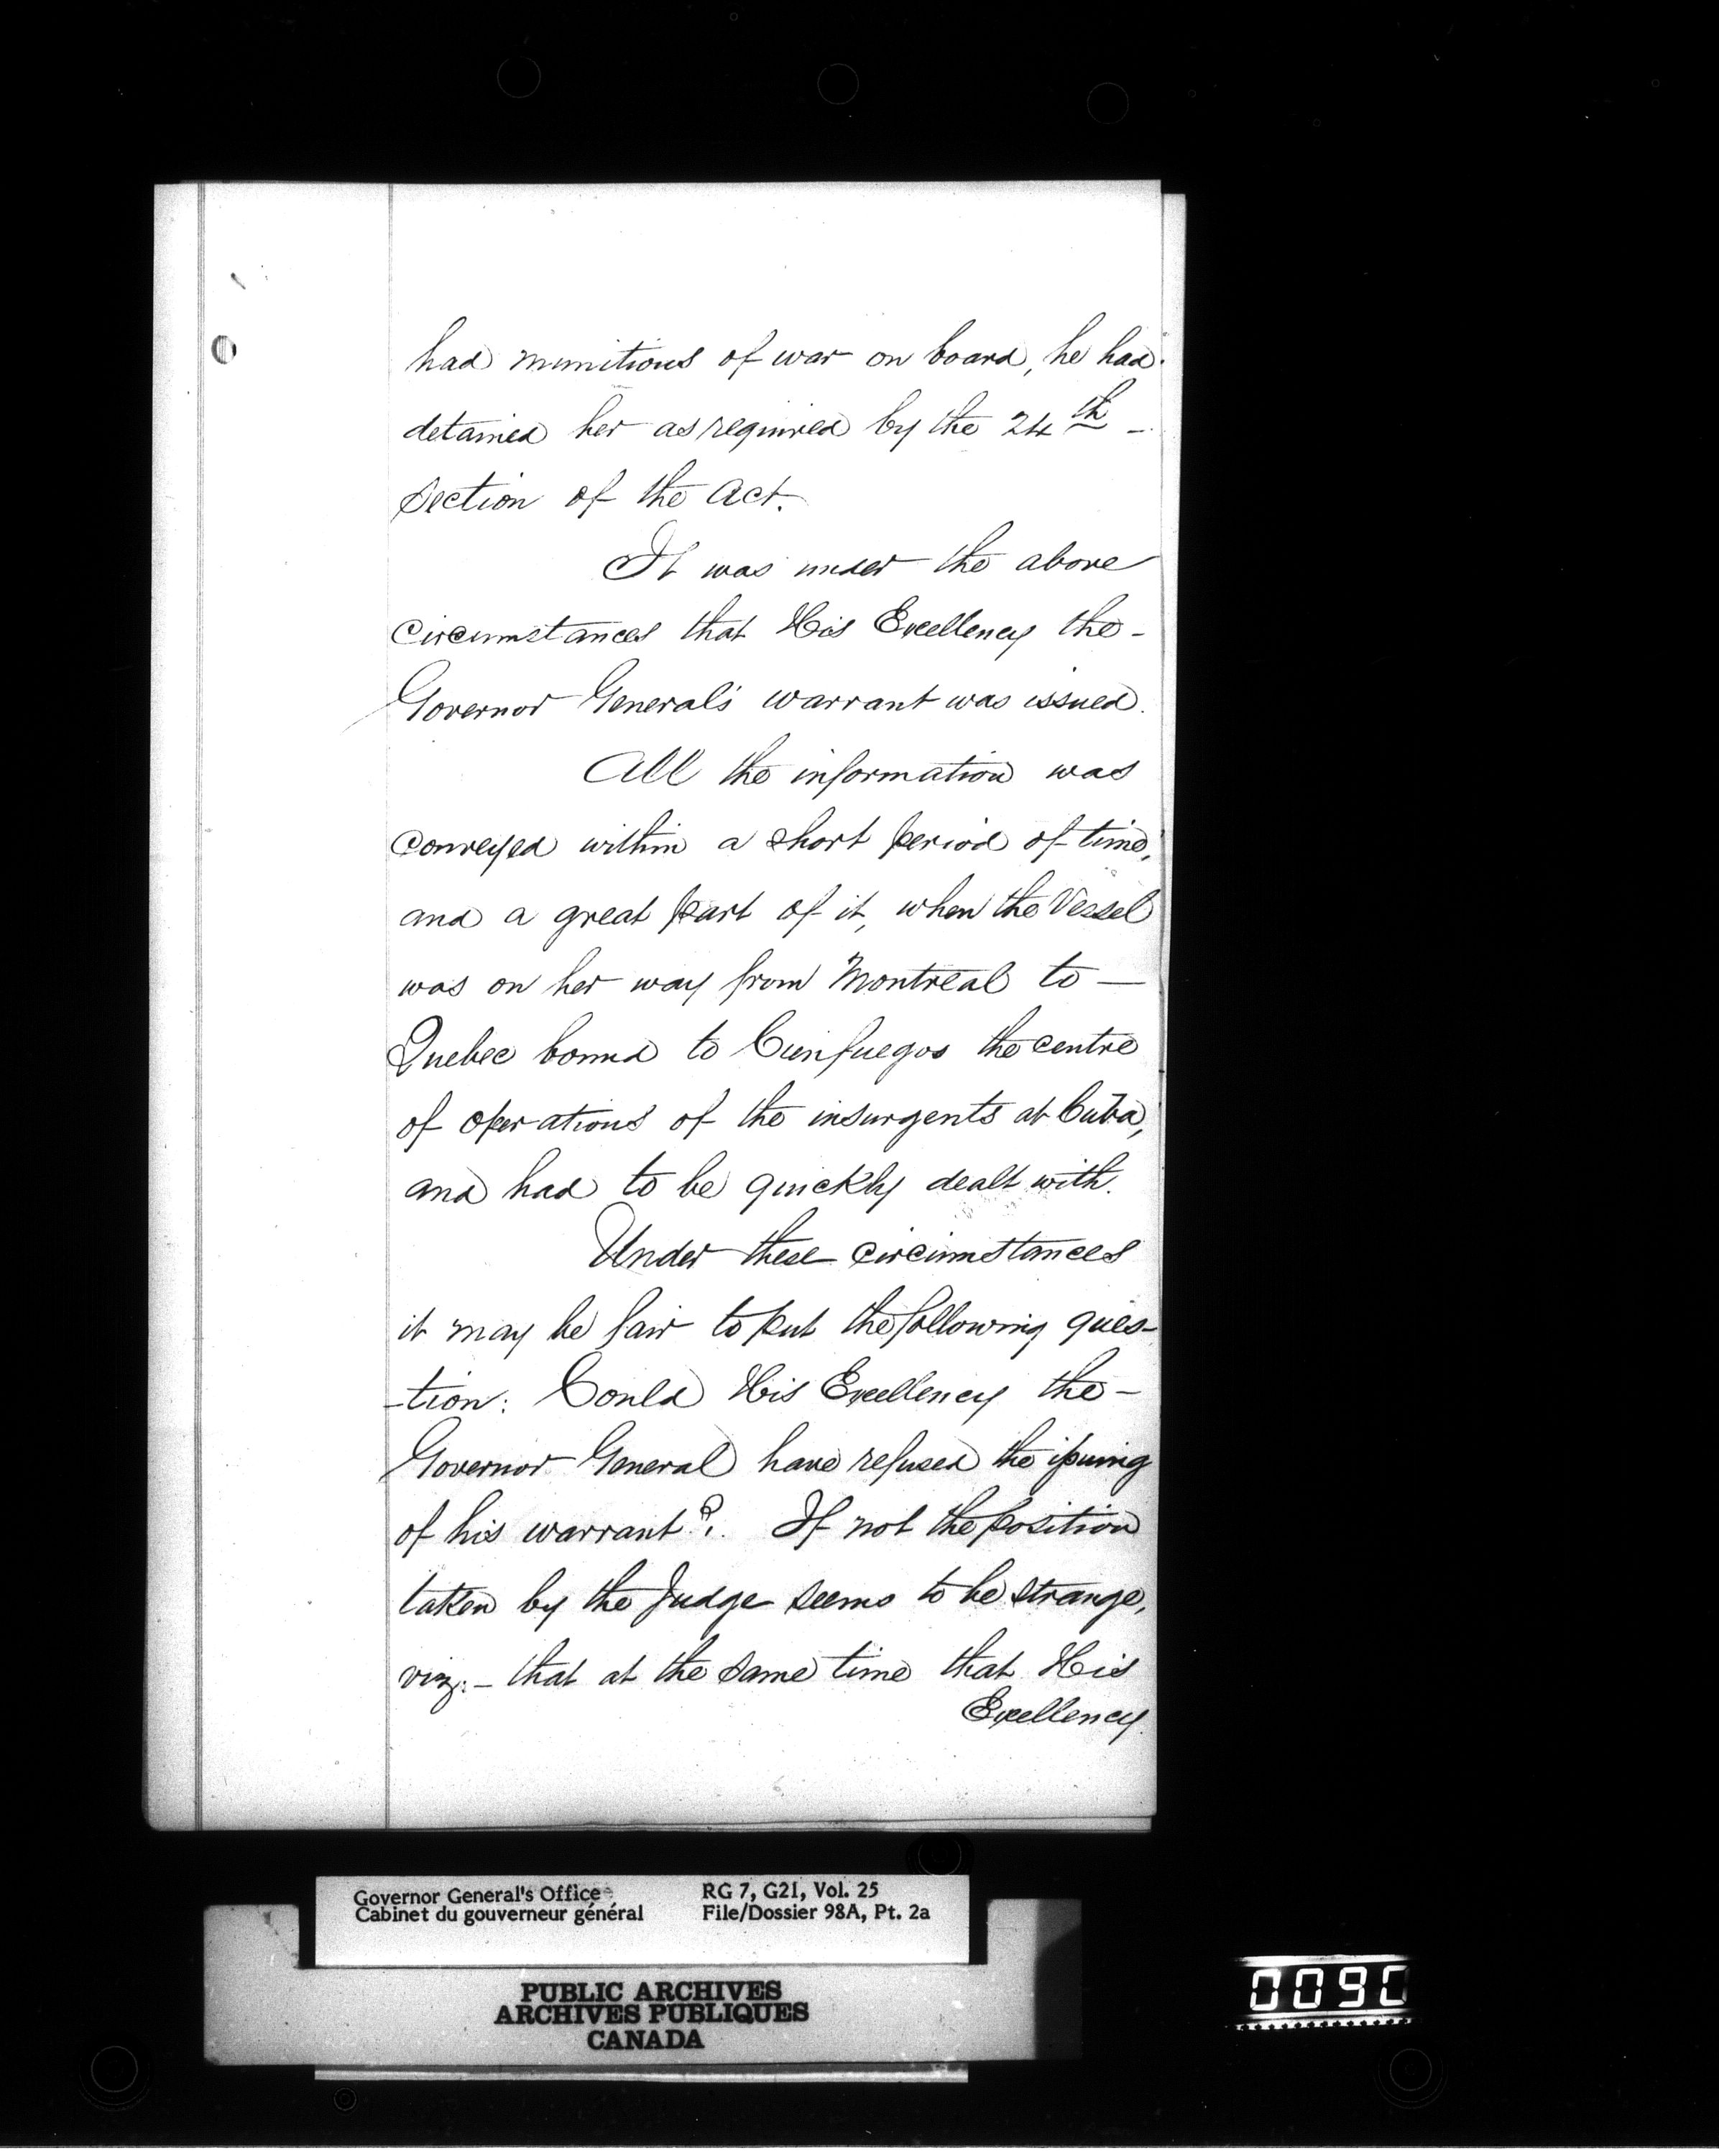 had munitions of war on board, he had
detained her as required by the 24th -
section of the Act.
It was under the above
circumstances that His Excellency the -
Governor General's warrant was issued.
All the information was
conveyed within a short period of time,
and a great part of it, when the Vessel
was on her way from Montreal to —
Quebec bound to Cuinfuegos the centre
of operations of the insurgents at Cuba,
and had to be quickly dealt with.
Under these circumstances
it may be fair to put the following ques-
-tion: Could His Excellency the -
Governor General have refused the issuing
of his warrant?. If not the position
taken by the Judge seems to be strange,
viz:- that at the same time that His
Excellency
Governor General's Office RG 7, G21, Vol. 25
Cabinet du gouverneur général File/Dossier 98A, Pt. 2a
PUBLIC ARCHIVES
ARCHIVES PUBLIQUES
CANADA
0090